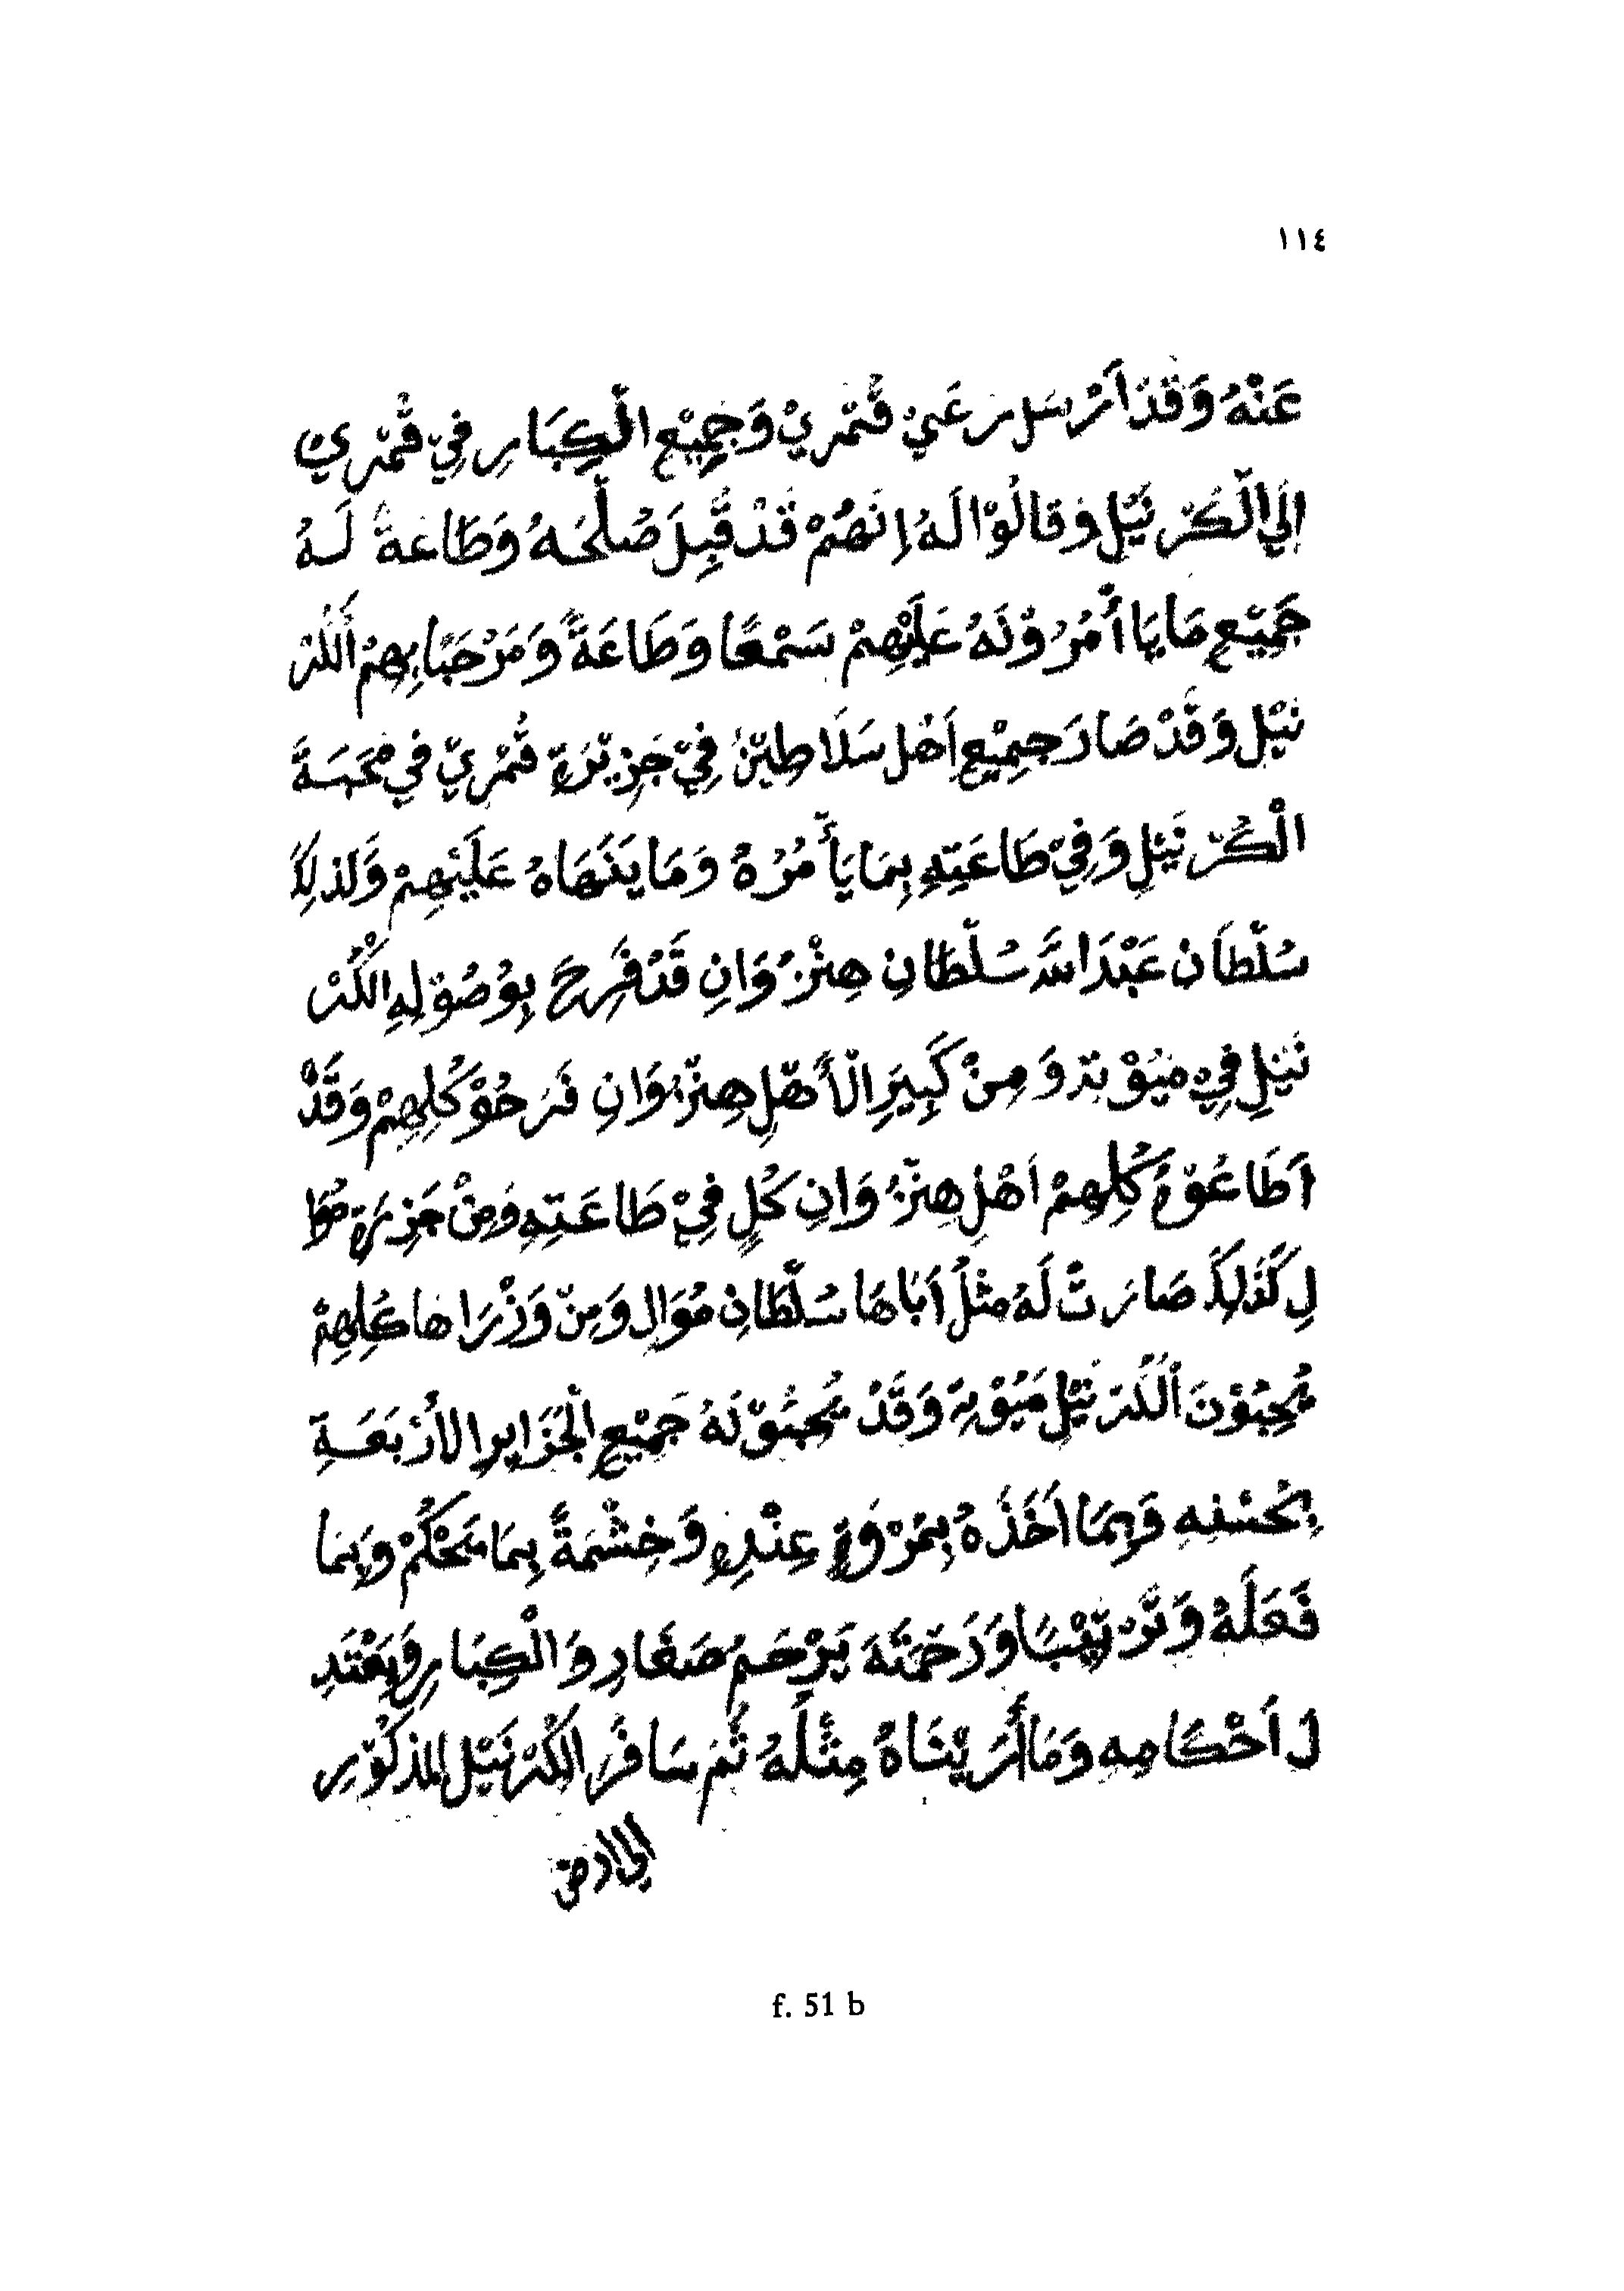 ١١٤
عَنْهُ وَقَدْ اَرْسَل رَعَيْ قُمْرِيْ وَجَمِيْع الْكِبَارِ فِيْ قُمْرِي
اِلَي الْكُرْنَيْلِ وَقَالُوْا لَهُ اِنَهُمْ قَدْ قَبِلَ صُلْحَهُ وَطَاعَةً لَهُ
جَمِيْعِ مَايَا أْمُرُوْنَهُ عَلَيْهِمْ سَمْعًا وَطَاعَةً وَمَرْحَبًا بِهِمْ اَلْكُرْ
نَيْلِ وَقَدْ صَارَ جَمِيْعِ اَهْل سَلَاطِيْنُ فِيْ جَزِيْرَةِ قُمْرِيْ فِي مُحَبَةَ
الْكُرْنَيْلِ وَفِيْ طَاعَتِهِ بِمَا يَأْمُرُهُ وَمَا يَنَهَاهُ عَلَيْهِمْ وَلَذلِكَ
سُلْطَان عَبْدَ اللَّه سُلْطَانِ هِنْزُوَانِ قَدْ فَرِحَ بِوُصُوْلِهِ الْكُرْ
نَيْلِ فِيْ مَيُوْتَهْ وَمِنْ كَبِيَرِ الْأَهْلِ هِنْزُوَانِ فَرَحُوْ كُلِهِمْ وَقَدْ
اَطَاعُوْهُ كُلِهِمْ اَهْلِ هِنْزُوَانِ كُلٍ فِيْ طَاعَتِهِ وَمِنْ جَزِيرَةِ مُوَا
لِ كَذَلِكَ صَارَتْ لَهُ مِثْلُ اَبَاهَا سُلْطَانِ مُوَالِ وَمِنْ وَزْرَاهَا كُلِهِمْ
يُحِبُوْنَ اَلْكُرْنَيْلِ مَيُوْتَهْ وَقَدْ يُحِبُوْنَهُ جَمِيْعِ الْجَزَايِرِ الاَرْبَعَةِ
بِحُسْنِهِ وَبِمَا اَخَذَهُ بِمُرْوَةٍ عِنْدِهِ وَخِشْمَةً بِمَا يَحْكُمْ وَبِمَا
فَعَلَهُ وَتَرْتِيْبًا وَرَحْمَتَهَ يَرْحَمُ صَغَارِ وَالْكِبَارِ وَيَعْتَدِ
لَ اَحْكَامِهِ وَمَا أَرَيْنَاهُ مِثْلَهُ ثُمَ سَافَرَ الْكُرْنَيْل المذكُوْرِ
الى ارض
f. 51 b